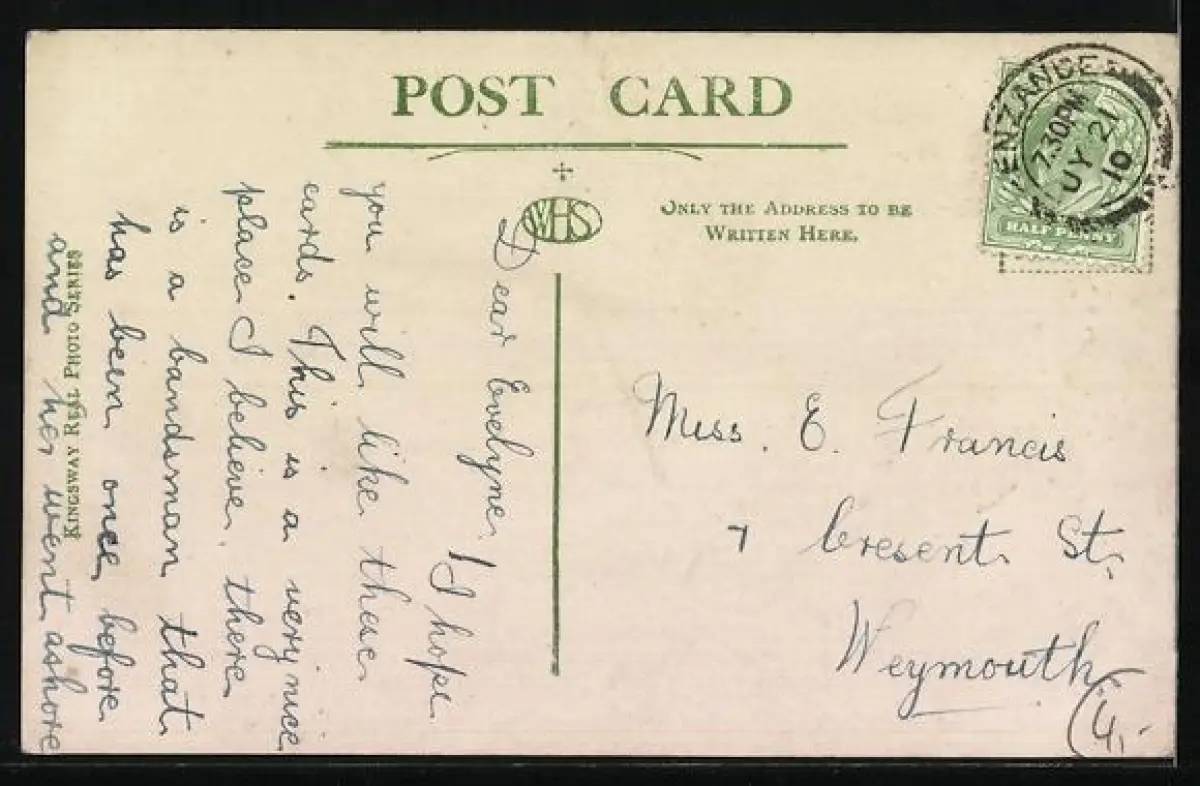 POST CARD
WHS
ONLY THE ADDRESS TO BE
WRITTEN HERE.
ENZANCE
7.30PM
JY 21
10
HALF PENNY
Dear Evelyne
I hope
you will like these
cards. This is a very nice
place I believe. there
is a bandsman that
has been once before
and he went ashore
KINGSWAY REAL PHOTO SERIES
Miss. E. Francis
7 Cresent St.
Weymouth
4,-